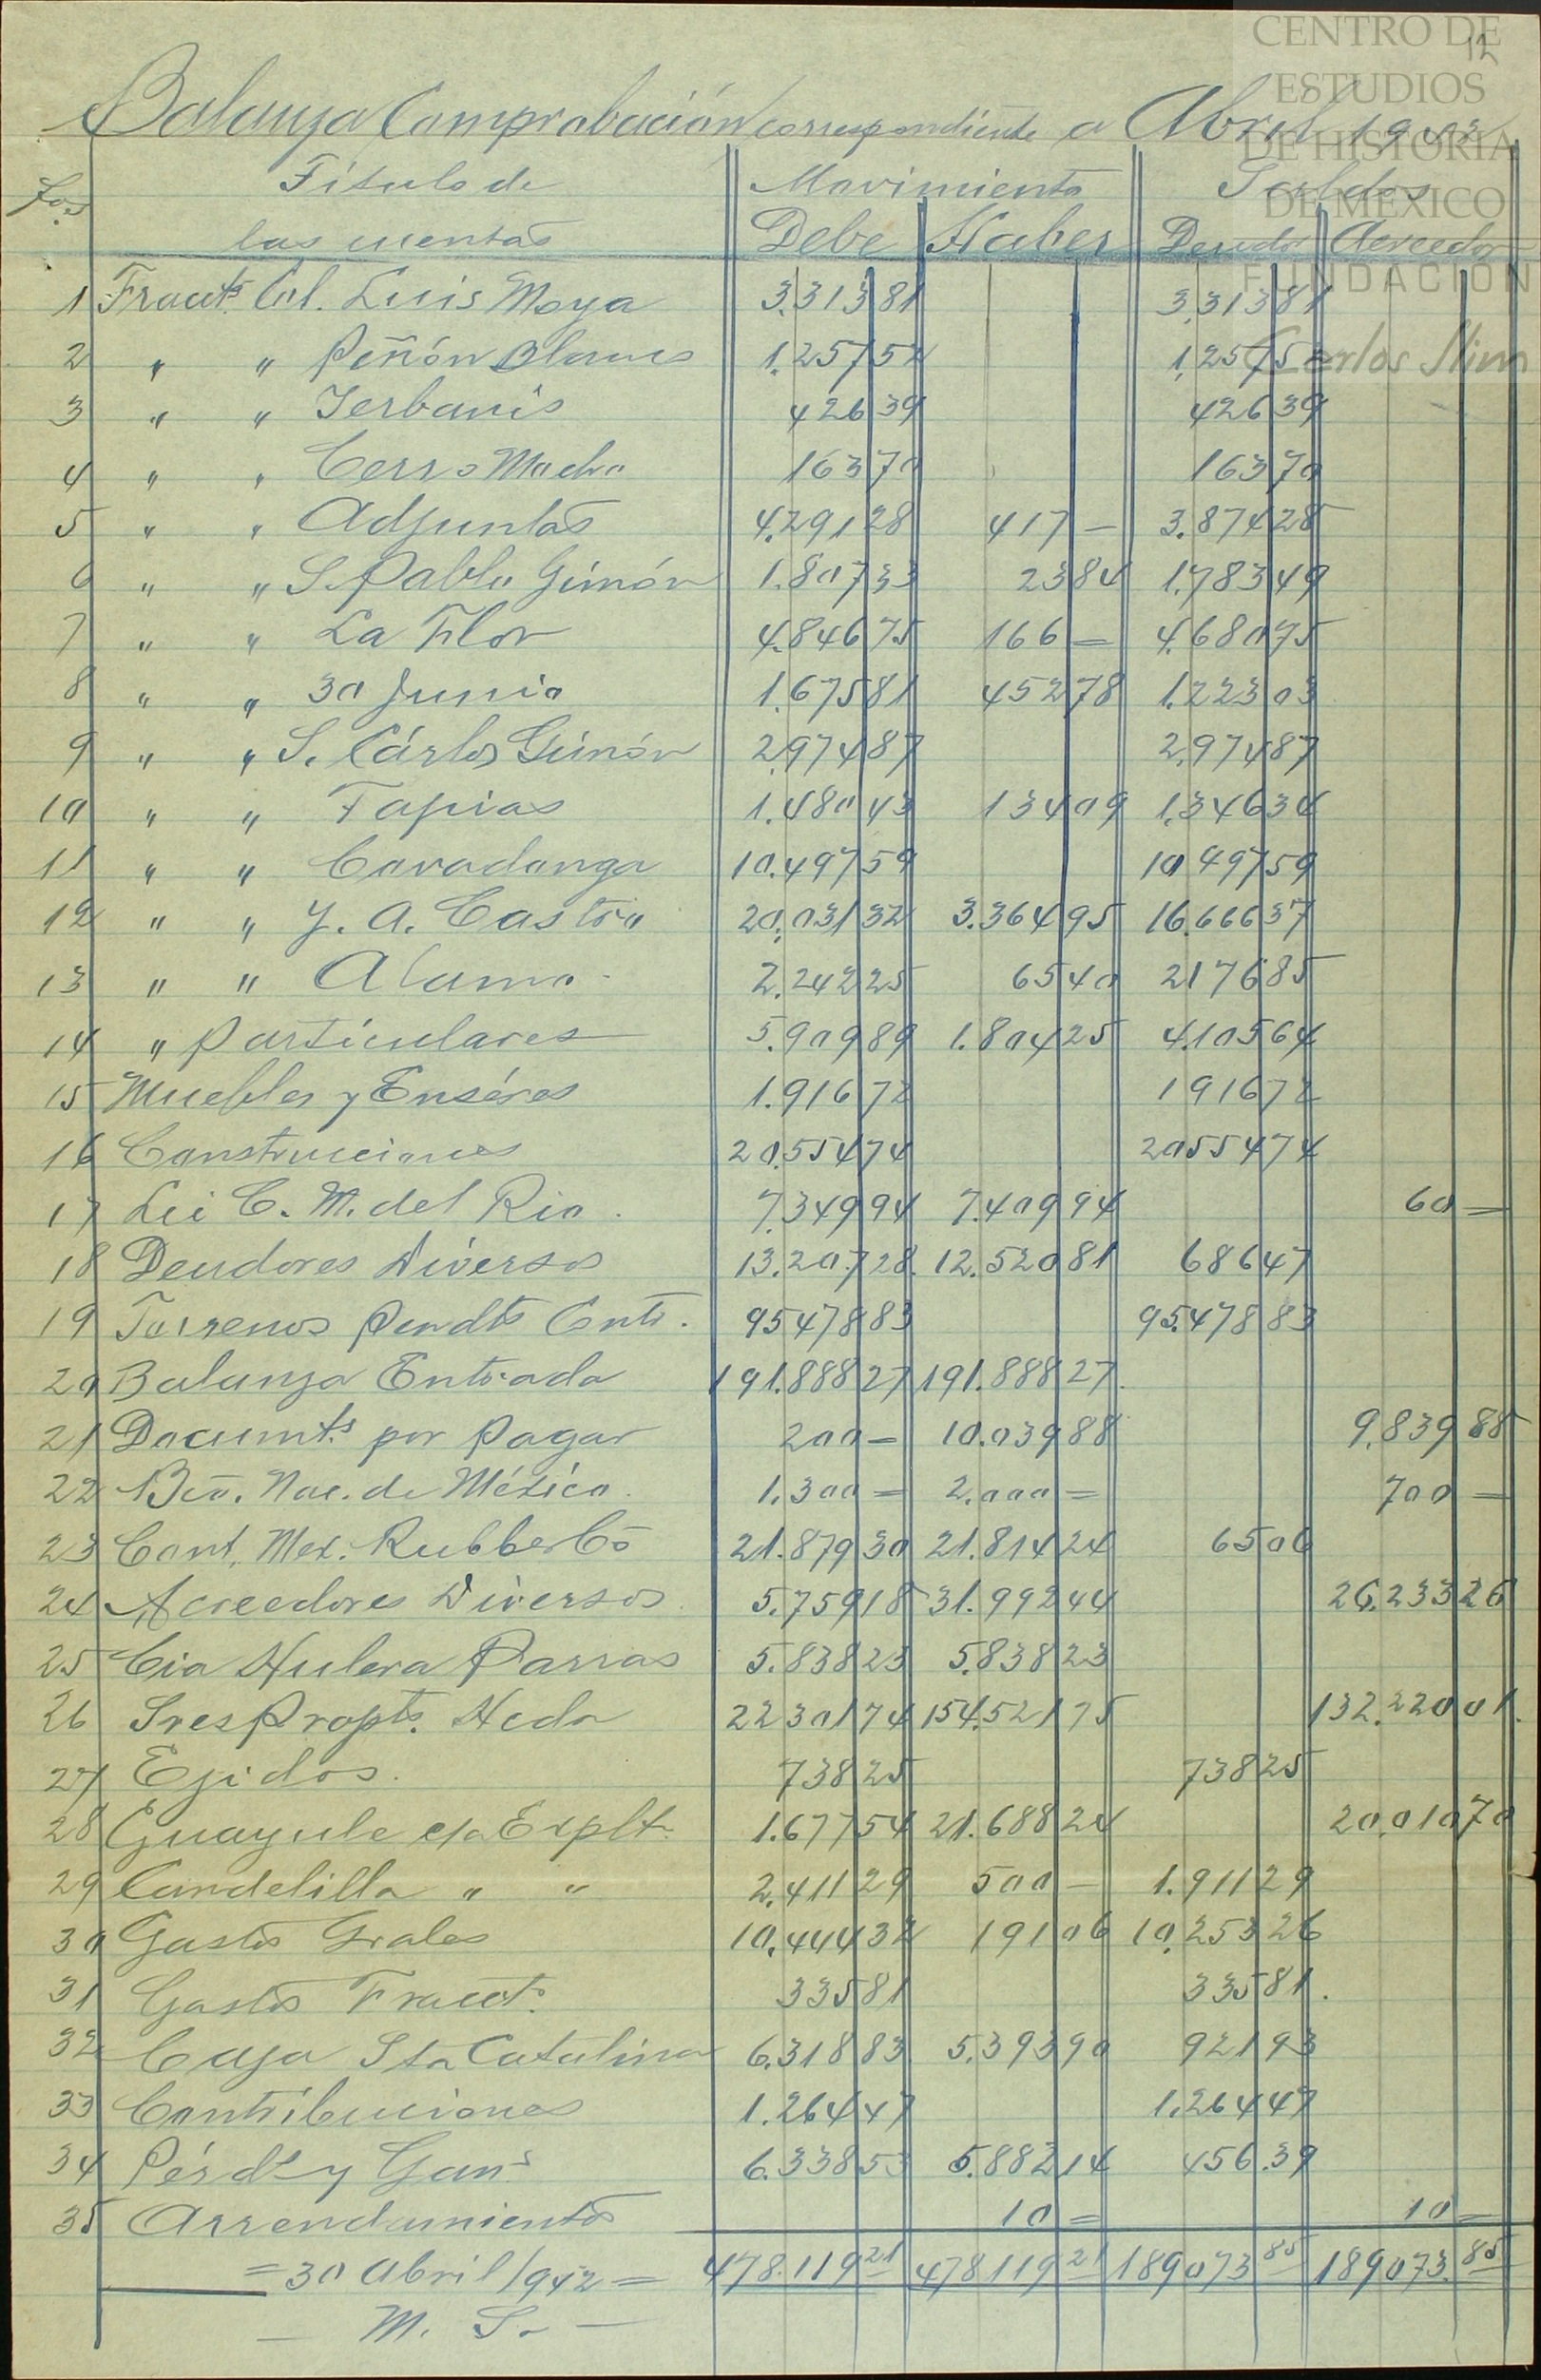 12
CENTRO DE
ESTUDIOS
DE HISTORIA
DE MEXICO
FUNDACIÓN
Carlos Slim
Balanza Comprobación correspondiente a Abril 1942
Fos. Título de Movimiento Saldos
las cuentas Debe Haber Deudor Acreedor
1 Fracts. Col. Luis Moya 3.313 81 3.313 81
2 " " Peñón Blanco 1.257 52 1.257 52
3 " " Yerbanis 426 39 426 39
4 " " Cerro Macho 163 70 163 70
5 " " Adjuntas 4.291 28 417 — 3.874 28
6 " " S. Pablo Gimón 1.807 33 23 84 1.783 49
7 " " La Flor 4.846 75 166 = 4.680 75
8 " " 30 Junio 1.675 81 452 78 1.223 03
9 " " S. Cárlos Gimón 2.974 87 2.974 87
10 " " Tapias 1.480 43 134 09 1.346 34
11 " " Covadonga 10.497 59 10 497 59
12 " " J. A. Castro 20.031 32 3.364 95 16.666 37
13 " " Alamo 2.242 25 65 40 2176 85
14 " Particulares 5.909 89 1.804 25 4.105 64
15 Muebles y Enséres 1.916 72 1916 72
16 Construcciones 20.554 74 20554 74
17 Lic C. M. del Rio. 7.349 94 7.409 94 60 =
18 Deudores Diversos 13.207 28 12.520 81 686 47
19 Terrenos Pendts Cont. 95478 83 95.478 83
20 Balanza Entrada 191.888 27 191.888 27
21 Documts. por Pagar 200 = 10.039 88 9.839 88
22 Bco. Nac. de México. 1.300 = 2.000 = 700 =
23 Cont. Mex. Rubber Co 21.879 30 21.814 24 65 06
24 Acreedores Diversos 5.759 18 31.992 44 26.233 26
25 Cia Hulera Parras 5.838 23 5.838 23
26 Sres Propts. Hcda 22301 74 154.521 75 132.220 01.
27 Ejidos. 738 25 738 25
28 Guayule c/a Explt. 1.677 54 21.688 24 20.010 70
29 Candelilla " " 2.411 29 500 — 1.911 29
30 Gastos Grales 10.444 32 191 06 10.253 26
31 Gastos Fract. 335 81 335 81.
32 Caja Sta Catalina 6.318 83 5.393 90 921 93
33 Contribuciones 1.264 47 1.264 47
34 Pérds y Gans 6.338 53 5.882 14 456.39
35 Arrendamientos 10 = 10 =
= 30 Abril/942 = 478.119 21 478119 21 189073 85 189073. 85
— M. S. —